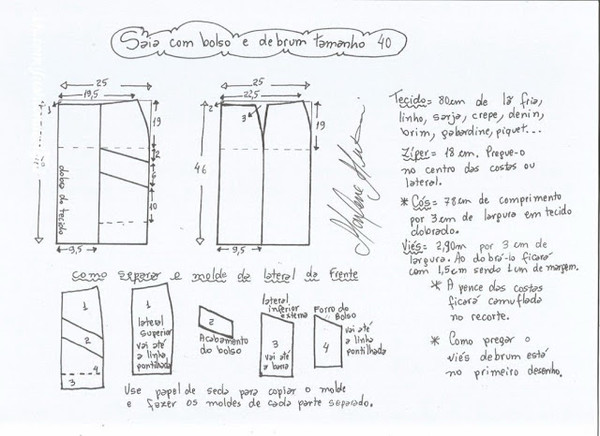 Saia com bolso e debrum tamanho 40
25
19,5
1
19
46
dobra do tecido
2
10
9,5
25
22,5
2
3
19
46
9,5
Marlene Mukai
Tecido = 80cm de lã fria,
linho, sarja, crepe, denin,
brim, gabardine, piquet...
Zíper = 18 cm. Pregue-o
no centro das costas ou
lateral.
* Cós = 78cm de comprimento
por 3cm de largura em tecido
dobrado.
Viés = 2,90m por 3 cm de
largura. Ao dobrá-lo ficará
com 1,5cm sendo 1cm de margem.
* A pence das costas
ficará camuflada
no recorte.
* Como pregar o
viés debrum está
no primeiro desenho.
como separar o molde da lateral da frente
1
2
3
4
1
lateral
superior
vai até
a linha
pontilhada
2
Acabamento
do bolso
lateral
inferior
externa
3
vai até
a barra
Forro do
Bolso
4
vai até
a linha
pontilhada
Use papel de seda para copiar o molde
e fazer os moldes de cada parte separado.